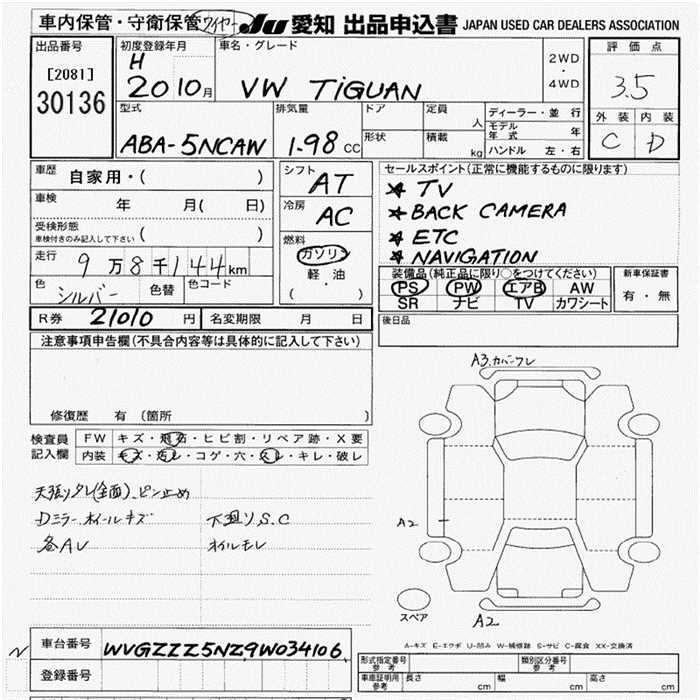 車内保管・守衛保管 ワイヤー JU 愛知 出品申込書 JAPAN USED CAR DEALERS ASSOCIATION
出品番号 [2081] 30136
初度登録年月 H 20 10 月
車名・グレード VW TiGUAN
2WD・4WD
評価点 3.5
外装 内装
C D
型式 ABA-5NCAW
排気量 1.98 CC
ドア 定員 人
形状 積載 kg
ディーラー・並行
モデル年式 年
ハンドル 左・右
車歴 自家用・( )
車検 年 月( 日)
受検形態 車検付きのみ記入して下さい ( )
走行 9万8千144km
色 シルバー 色替 色コード
シフト AT
冷房 AC
燃料 ガソリン 軽・油 ( ・ )
セールスポイント(正常に機能するものに限ります)
★ TV
★ BACK CAMERA
★ ETC
★ NAVIGATION
装備品(純正品に限り○をつけてください)
PS PW エアB AW
SR ナビ TV カワシート
新車保証書
有・無
R券 21010 円 名変期限 月 日
後日品
注意事項申告欄(不具合内容等は具体的に記入して下さい)
修復歴 有 (箇所 )
検査員記入欄
FW キズ・飛石・ヒビ割・リペア跡・X要
内装 キズ・汚レ・コゲ・穴・スレ・キレ・破レ
天張りタレ(全面)、ピン止め
Dミラー、ホイールキズ 下廻りS.C
各AU オイルモレ
A3.カバーワレ
A2
スペア
A2
A-キズ E-エクボ U-凹み W-補修跡 S-サビ C-腐食 XX-交換済
N 車台番号 WVGZZZ5NZ9W034106
登録番号
形式指定番号 参考 類別区分番号 参考
車庫証明用 参考 長さ cm 幅 cm 高さ cm